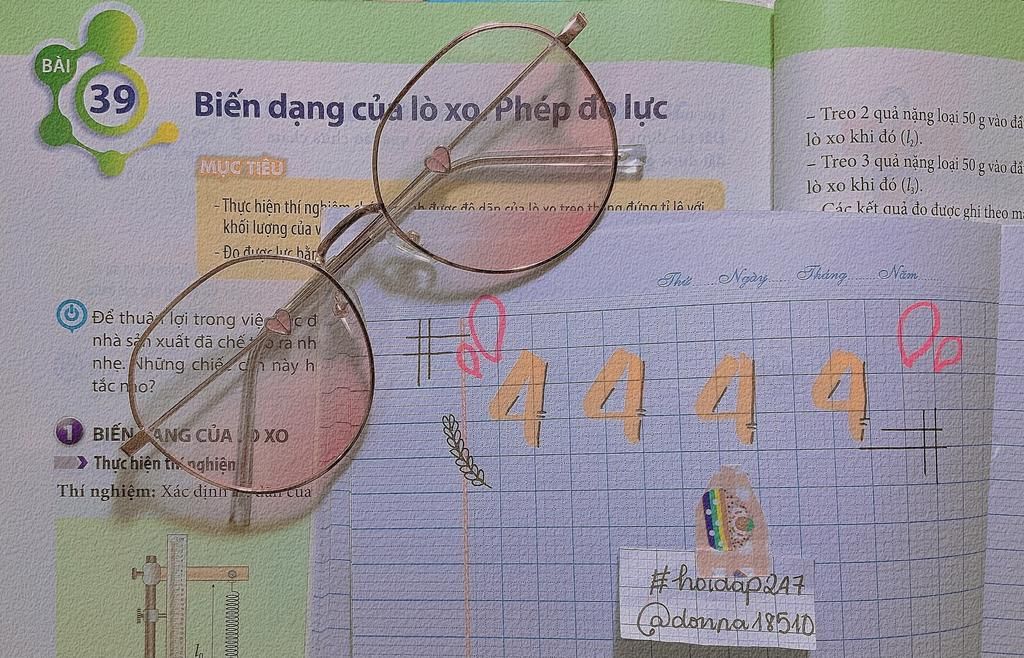 BÀI
39
Biến dạng của lò xo. Phép đo lực
MỤC TIÊU
- Thực hiện thí nghiệm được độ dãn của lò xo treo thẳng đứng tỉ lệ với
khối lượng của
- Đo được lực
Để thuận lợi trong việc
nhà sản xuất đã chế tạo ra
nhẹ. Những chiếc cân này
tắc nào?
1 BIẾN DẠNG CỦA LÒ XO
Thực hiện thí nghiệm
Thí nghiệm: Xác định độ dãn của
l₀
- Treo 2 quả nặng loại 50 g vào
lò xo khi đó (l₂).
- Treo 3 quả nặng loại 50 g vào
lò xo khi đó (l₃).
Các kết quả đo được ghi theo
Thứ......Ngày.......Tháng.......Năm......
4 4 4 4
#hoidap247
@donna18510